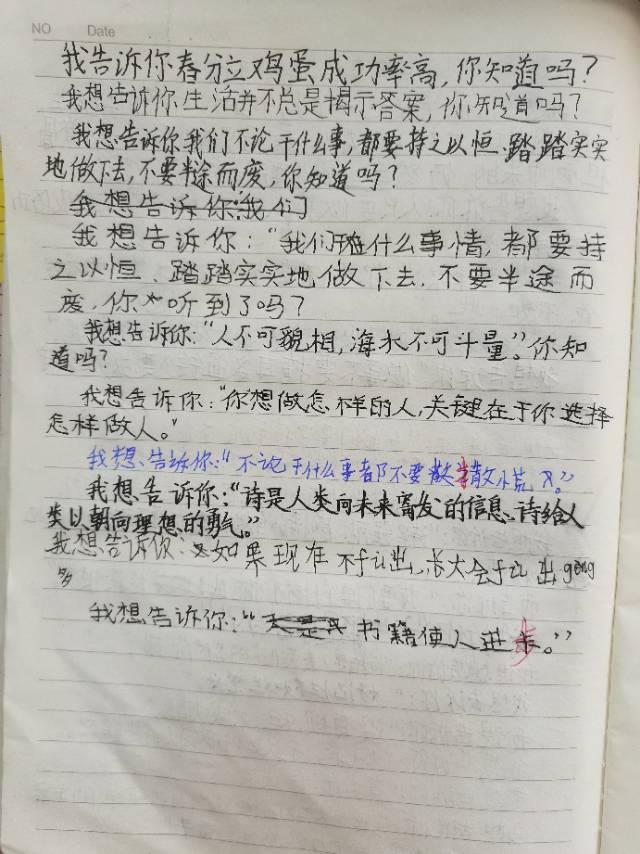 NO Date
我告诉你春分立鸡蛋成功率高,你知道吗?
我想告诉你生活并不总是揭示答案,你知道吗?
我想告诉你我们不论干什么事,都要持之以恒、踏踏实实
地做下去,不要半途而废,你知道吗?
我想告诉你:我们
我想告诉你:“我们 什么事情,都要持
之以恒、踏踏实实地做下去,不要半途而
废,你听到了吗?
我想告诉你:“人不可貌相,海水不可斗量。”你知
道吗?
我想告诉你:“你想做怎样的人,关键在于你选择
怎样做人。”
我想告诉你:“不论干什么事都不要 撒小谎
我想告诉你:“诗是人类向未来寄发的信息,诗给人
类以朝向理想的勇气。”
我想告诉你:如果现在不付出,长大会付出gèng
多
我想告诉你:“ 书籍使人进步。”